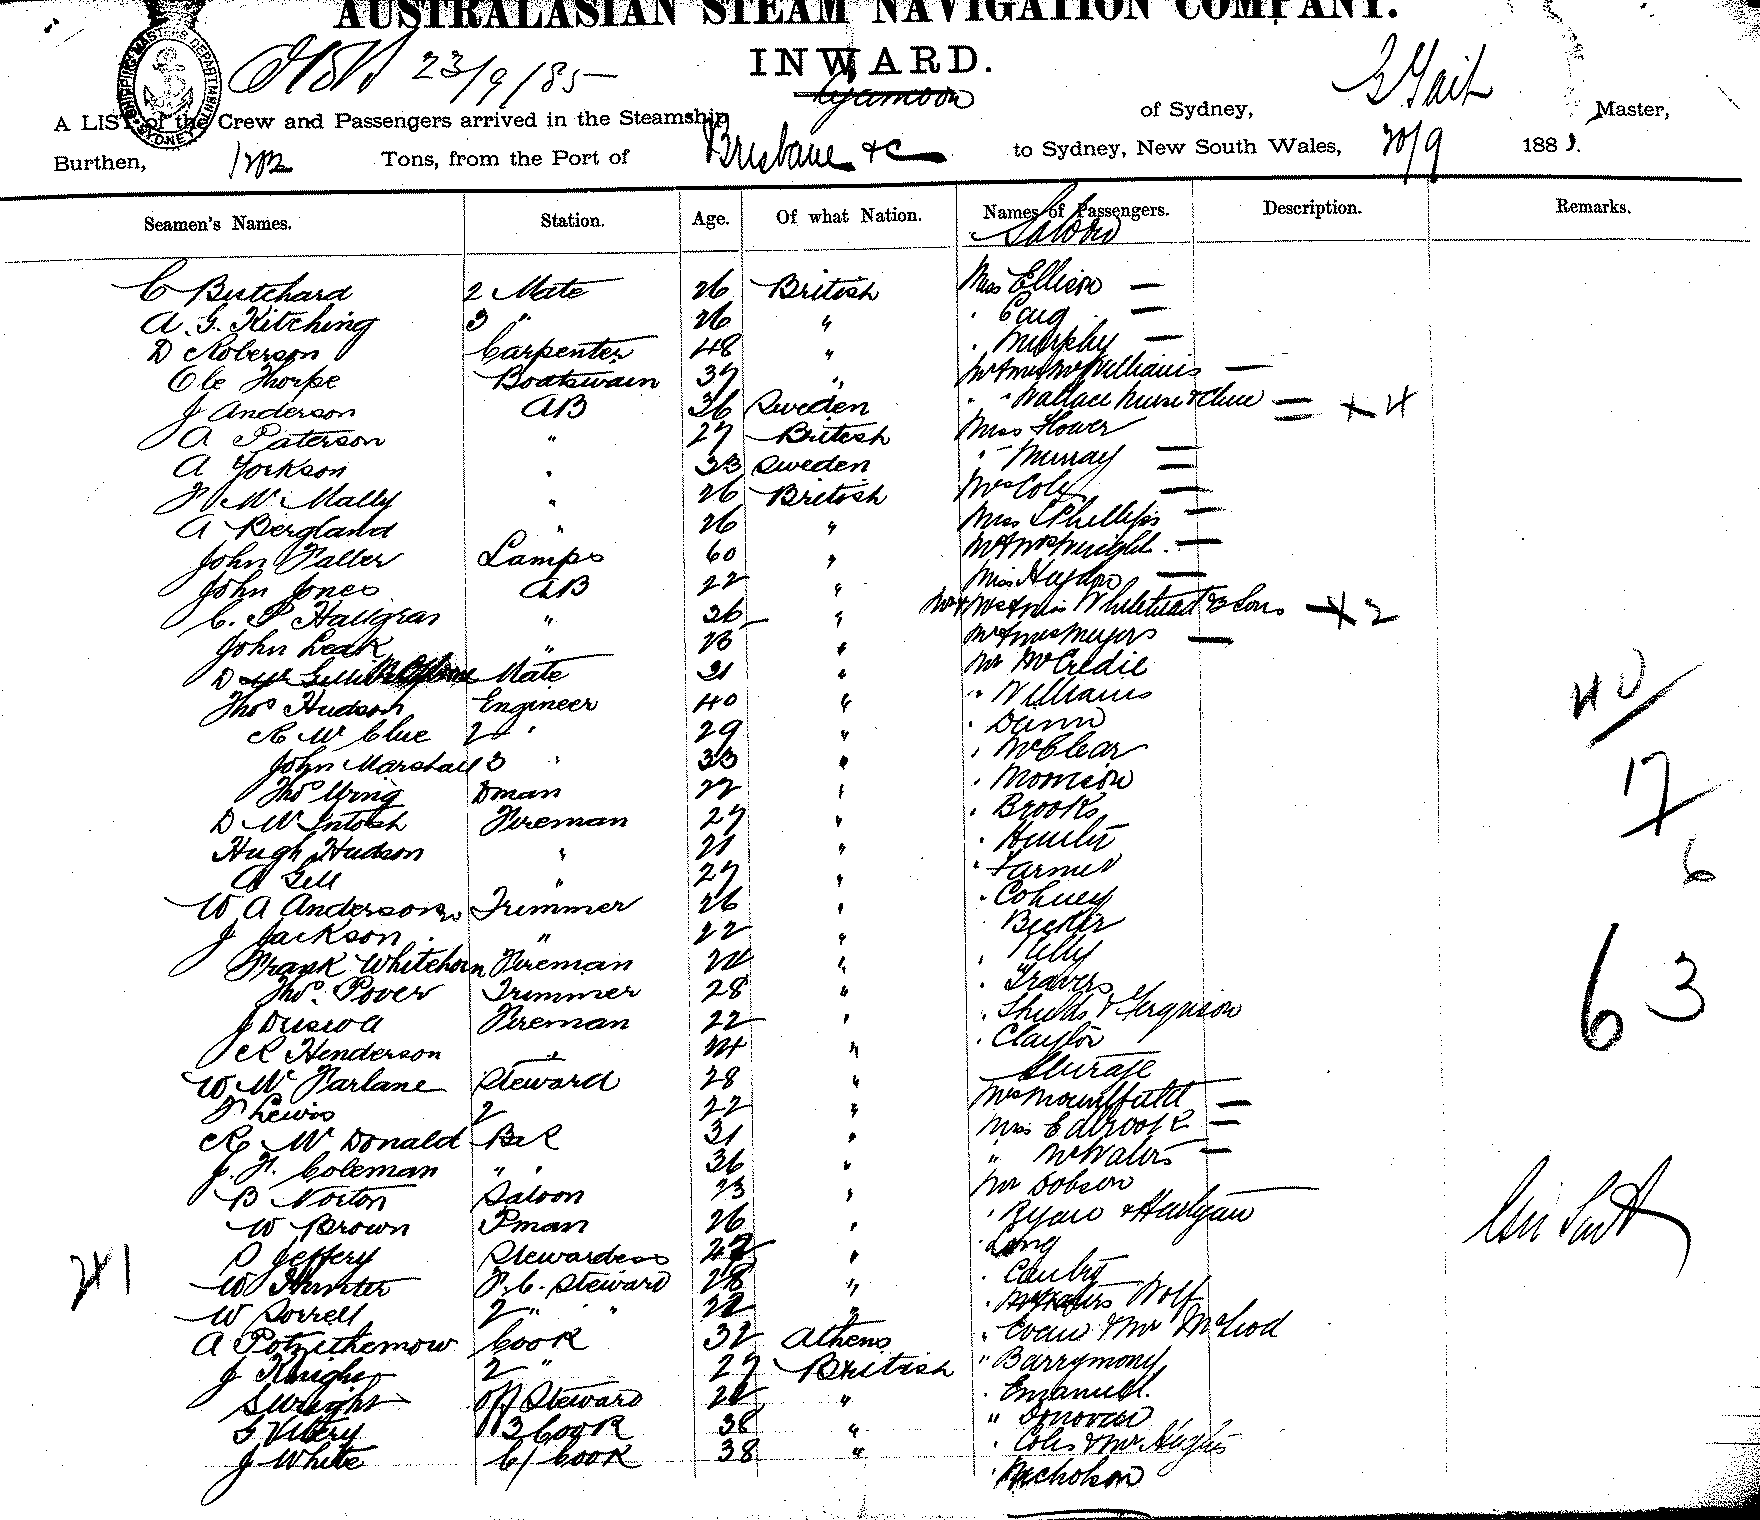 AUSTRALASIAN STEAM NAVIGATION COMPANY.
INWARD.
23/9/85
A LIST of the Crew and Passengers arrived in the Steamship of Sydney, Master,
Burthen, Tons, from the Port of Brisbane &c to Sydney, New South Wales, 20/9 188
Seamen's Names. Station. Age. Of what Nation. Names of Passengers. Description. Remarks.
Saloon
C Butchard 2 Mate 26 British Miss Ellison —
A. G. Kitching 3 " 26 " " Craig —
D Roberson Carpenter 48 " " Murphy —
Ole Thorpe Boatswain 37 " Mr & Mrs McWilliams —
J Anderson AB 36 Sweden " " Wallace Nurse & Chue = + 4
A Paterson " 27 British Miss Flower
A Yorkson " 33 Sweden " Murray =
F McMally " 26 British Mrs Cole —
A Bergland " 26 " Miss Phellips —
John Faller Lamps 60 " Mr & Mrs Wright —
John Jones AB 22 " Miss —
C. P Hallgran " 26 " Mr & Mrs & Miss Whitehead & 3 Sons + 2
John Leak " 23 " Mr & Mrs Meyers —
D Mate 31 " Mr McCredie
Thos Hudson Engineer 40 " " Williams
R McClue 2 " 29 " " Dunn
John Marshall 3 " 33 " " McClear
Thos Wing Dman 22 " " Morrison
D McIntosh Fireman 27 " " Brooks
Hugh Hudson " 21 " " Hunter
A Gell " 27 " " Farmer
W A Anderson Trimmer 26 " " Cohney
J Jackson " 22 " Becker
Frank Whitehorn Fireman " " Kelly
Thos. Pover Trimmer 28 " " Travers
J Driscoll Fireman 22 " " Shields & Ferguson
R Henderson " 24 " " Clayton
Steerage
W McFarlane Steward 28 " Mrs Mountfield —
F Lewis 2 22 " Mrs —
R McDonald B&R 31 " " McWaters —
J. H. Coleman " " 36 " Mr Dobson
B Norton Saloon 23 " " Ryan & Hartigan
W Brown Pman 26 " " Long
S Jeffery Stewardess " " Cantry
W Hunter F. C. Steward 28 " " Wolf
W Sorrell 2 " " 22 " " Evans & Mr McLeod
A Potzithemow Cook 32 Athens " Barrymony
J Knight 2 " 27 British " Emanuel.
S Wright Off Steward " " Donovan
G Vibery 3 Cook 38 " " Coles & Mr Angus
J White C/ Cook 38 " " Nicholson
40
17
6
63
241